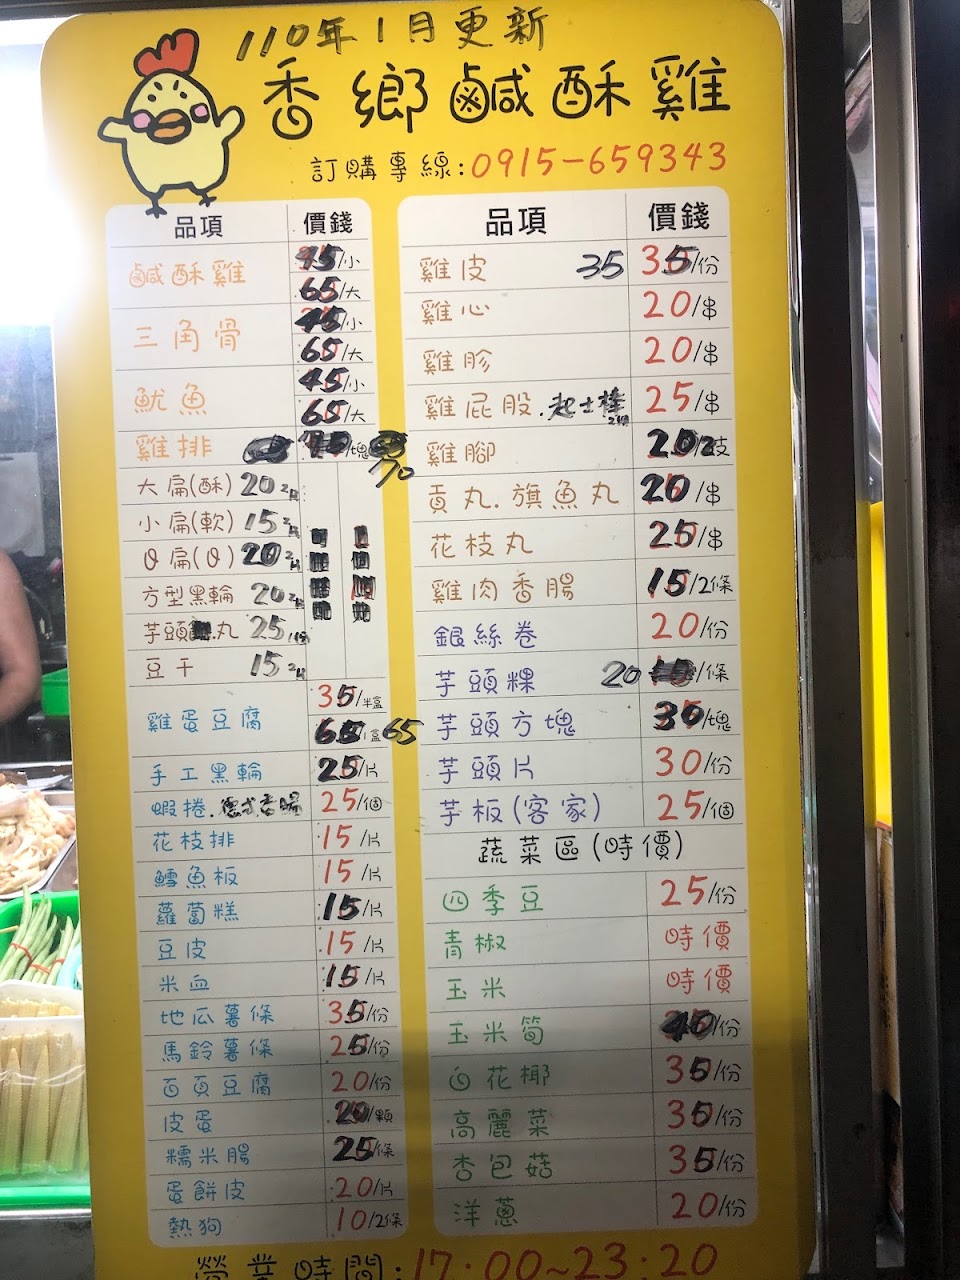 110年1月更新
香鄉鹹酥雞
訂購專線:0915-659343
品項 價錢
鹹酥雞 45/小
65/大
三角骨 45/小
65/大
魷魚 45/小
65/大
雞排 /塊 70
大扁(酥) 20
小扁(軟) 15
QQ扁(Q) 20
方型黑輪 20
芋頭丸 25
豆干 15
雞蛋豆腐 35/半盒
65/盒 65
手工黑輪 25/片
蝦捲.德式香腸 25/個
花枝排 15/片
鱈魚板 15/片
蘿蔔糕 15/片
豆皮 15/片
米血 15/片
地瓜薯條 35/份
馬鈴薯條 25/份
百頁豆腐 20/份
皮蛋 20/顆
糯米腸 25/條
蛋餅皮 20/片
熱狗 10/2條
品項 價錢
雞皮 35 35/份
雞心 20/串
雞胗 20/串
雞屁股.起士棒 25/串
雞腳 20/2支
貢丸.旗魚丸 20/串
花枝丸 25/串
雞肉香腸 15/2條
銀絲卷 20/份
芋頭粿 20 /條
芋頭方塊 30/塊
芋頭片 30/份
芋板(客家) 25/個
蔬菜區(時價)
四季豆 25/份
青椒 時價
玉米 時價
玉米筍 40/份
白花椰 35/份
高麗菜 35/份
杏包菇 35/份
洋蔥 20/份
營業時間:17:00~23:20